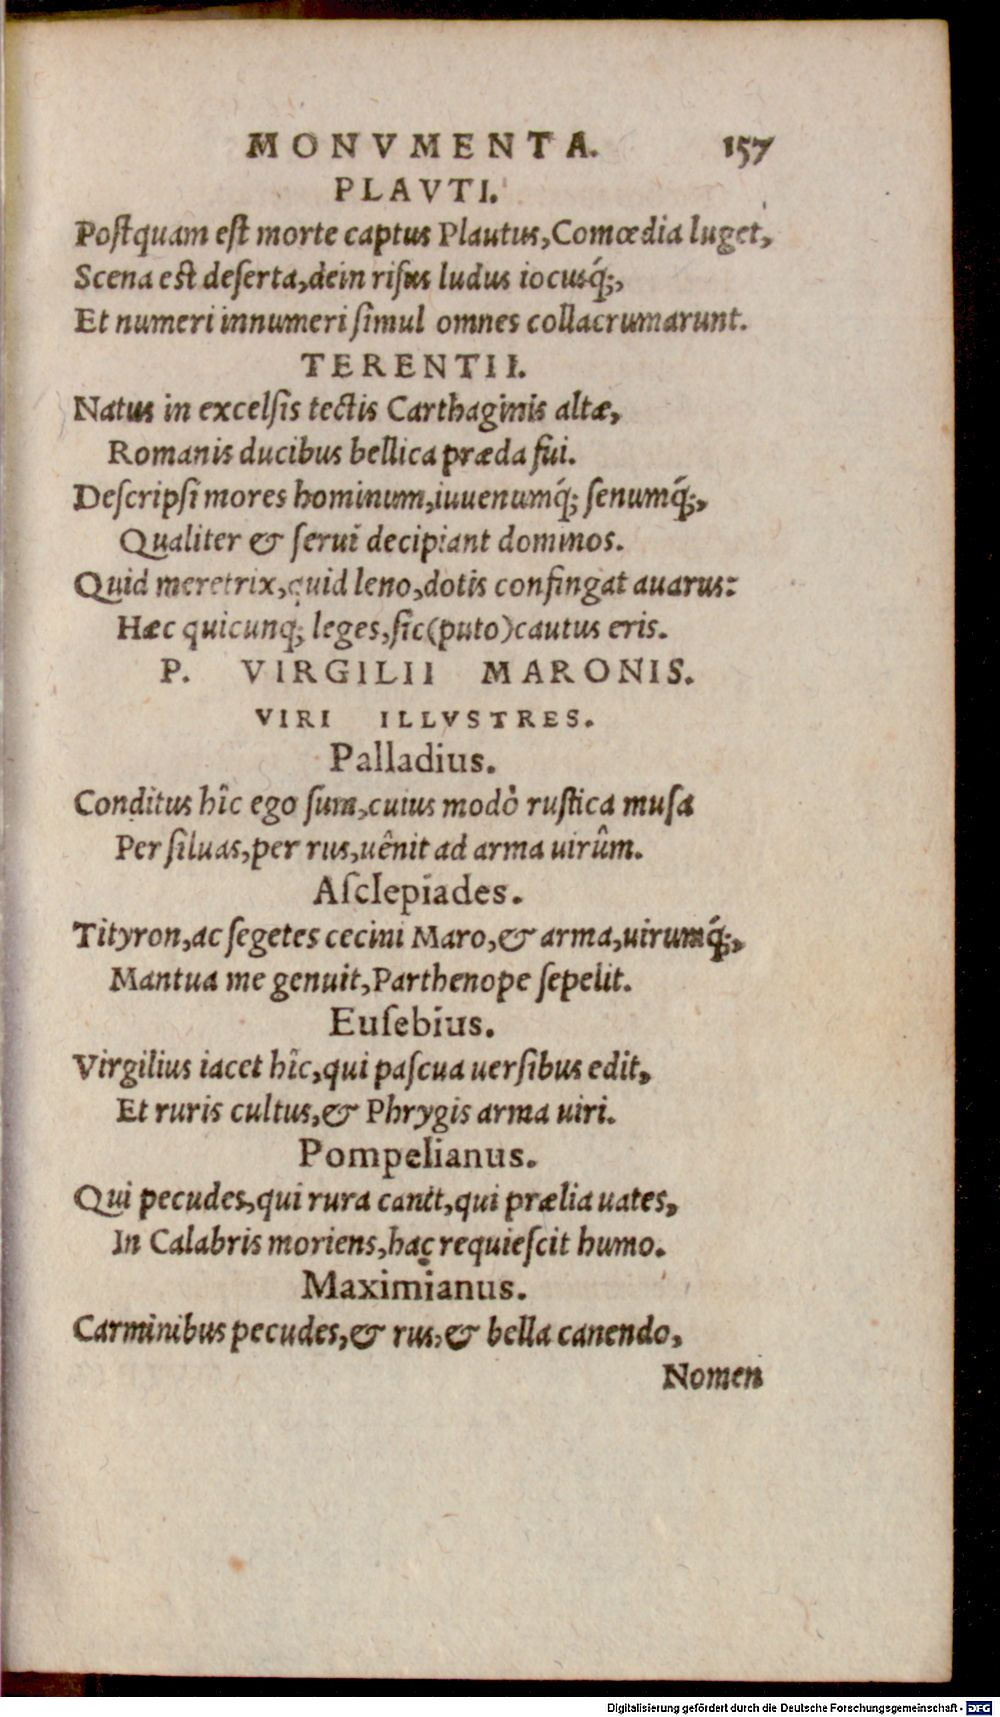 MONVMENTA. 157
PLAVTI.
Postquam est morte captus Plautus, Comœdia luget,
Scena est deserta, dein risus ludus iocusq́;,
Et numeri innumeri simul omnes collacrumarunt.
TERENTII.
Natus in excelsis tectis Carthaginis altæ,
Romanis ducibus bellica præda fui.
Descripsi mores hominum, iuuenumq́; senumq́;,
Qualiter & serui decipiant dominos.
Quid meretrix, quid leno, dotis confingat auarus:
Hæc quicunq; leges, sic (puto) cautus eris.
P. VIRGILII MARONIS.
VIRI ILLVSTRES.
Palladius.
Conditus hîc ego sum, cuius modò rustica musa
Per siluas, per rus, uênit ad arma uirûm.
Asclepiades.
Tityron, ac segetes cecini Maro, & arma, uirumq́;,
Mantua me genuit, Parthenope sepelit.
Eusebius.
Virgilius iacet hîc, qui pascua uersibus edit,
Et ruris cultus, & Phrygis arma uiri.
Pompelianus.
Qui pecudes, qui rura canit, qui prælia uates,
In Calabris moriens, hac requiescit humo.
Maximianus.
Carminibus pecudes, & rus, & bella canendo,
Nomen
Digitalisierung gefördert durch die Deutsche Forschungsgemeinschaft - DFG